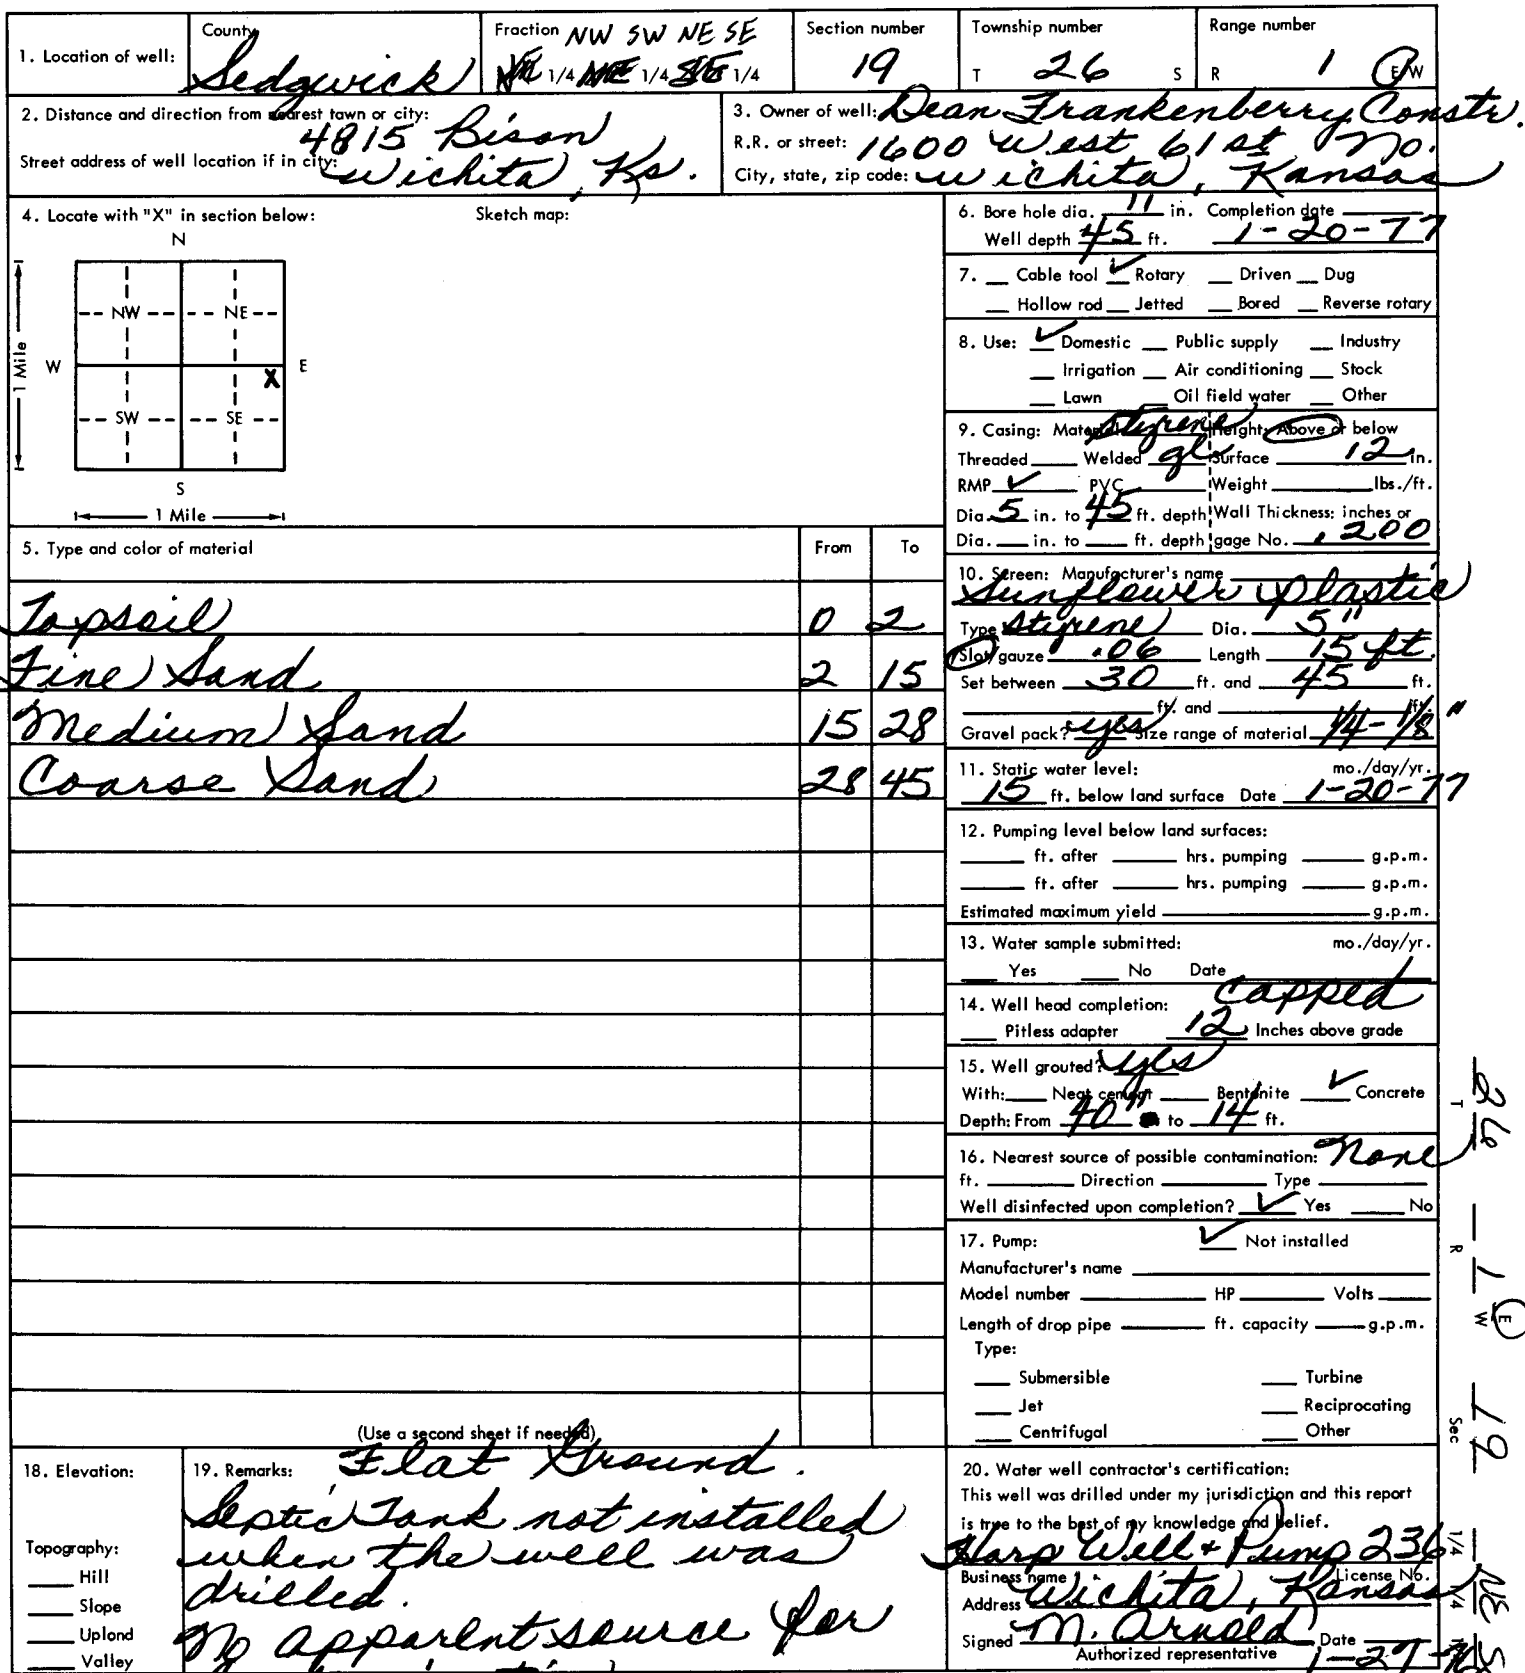 1. Location of well: County Sedgwick Fraction NW SW NE SE 1/4 1/4 1/4 Section number 19 Township number T 26 S Range number R 1 E/W
2. Distance and direction from nearest town or city: 4815 Bison
Street address of well location if in city: Wichita, Ks.
3. Owner of well: Dean Frankenberry Constr.
R.R. or street: 1600 West 61st No.
City, state, zip code: Wichita, Kansas
4. Locate with "X" in section below: Sketch map:
N
NW NE
1 Mile W E
X
SW SE
S
1 Mile
5. Type and color of material From To
Topsoil 0 2
Fine Sand 2 15
Medium Sand 15 28
Coarse Sand 28 45
(Use a second sheet if needed)
6. Bore hole dia. 11 in. Completion date
Well depth 45 ft. 1-20-77
7. Cable tool ✓ Rotary Driven Dug
Hollow rod Jetted Bored Reverse rotary
8. Use: ✓ Domestic Public supply Industry
Irrigation Air conditioning Stock
Lawn Oil field water Other
9. Casing: Material Styrene Height: Above or below
Threaded Welded gl Surface 12 in.
RMP ✓ PVC Weight lbs./ft.
Dia. 5 in. to 45 ft. depth Wall Thickness: inches or
Dia. in. to ft. depth gage No. .200
10. Screen: Manufacturer's name
Sunflower Plastic
Type Styrene Dia. 5"
Slot/gauze .06 Length 15 ft.
Set between 30 ft. and 45 ft.
ft. and ft.
Gravel pack? yes Size range of material 1/4-1/8"
11. Static water level: mo./day/yr.
15 ft. below land surface Date 1-20-77
12. Pumping level below land surfaces:
ft. after hrs. pumping g.p.m.
ft. after hrs. pumping g.p.m.
Estimated maximum yield g.p.m.
13. Water sample submitted: mo./day/yr.
Yes No Date
14. Well head completion: Capped
Pitless adapter 12 Inches above grade
15. Well grouted? yes
With: Neat cement Bentonite ✓ Concrete
Depth: From 40" to 14 ft.
16. Nearest source of possible contamination: None
ft. Direction Type
Well disinfected upon completion? ✓ Yes No
17. Pump: ✓ Not installed
Manufacturer's name
Model number HP Volts
Length of drop pipe ft. capacity g.p.m.
Type:
Submersible Turbine
Jet Reciprocating
Centrifugal Other
18. Elevation:
Topography:
Hill
Slope
Upland
Valley
19. Remarks: Flat Ground.
Septic Tank not installed
when the well was
drilled.
No apparent source for
20. Water well contractor's certification:
This well was drilled under my jurisdiction and this report
is true to the best of my knowledge and belief.
Harp Well & Pump 236
Business name License No.
Address Wichita, Kansas
Signed M. Arnold Date
Authorized representative
T 26
R 1 E W
Sec 19
1/4 1/4 NE